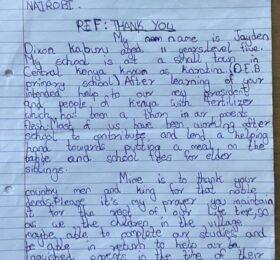 NAIROBI.
REF: THANK YOU
My name is Jayden
Dixon Kaburu aged 11 years, level five.
My school is at a small town in
Central Kenya known as Karatina (D.E.B
primary school. After learning of your
intended help to our new president
and people of Kenya with Fertilizer
which has been a thorn in our parents
flesh. Most of us have been working after
school to contribute and lend a helping
hand towards putting a meal on the
table and school fees for elder
siblings.
Mine is to thank your
country men and king for that noble
deeds. Please it's my prayer you maintain
it for the rest of our life here, so
as we the children in the village
may able to complete our studies and
be able in return to help our
parents in the time of their